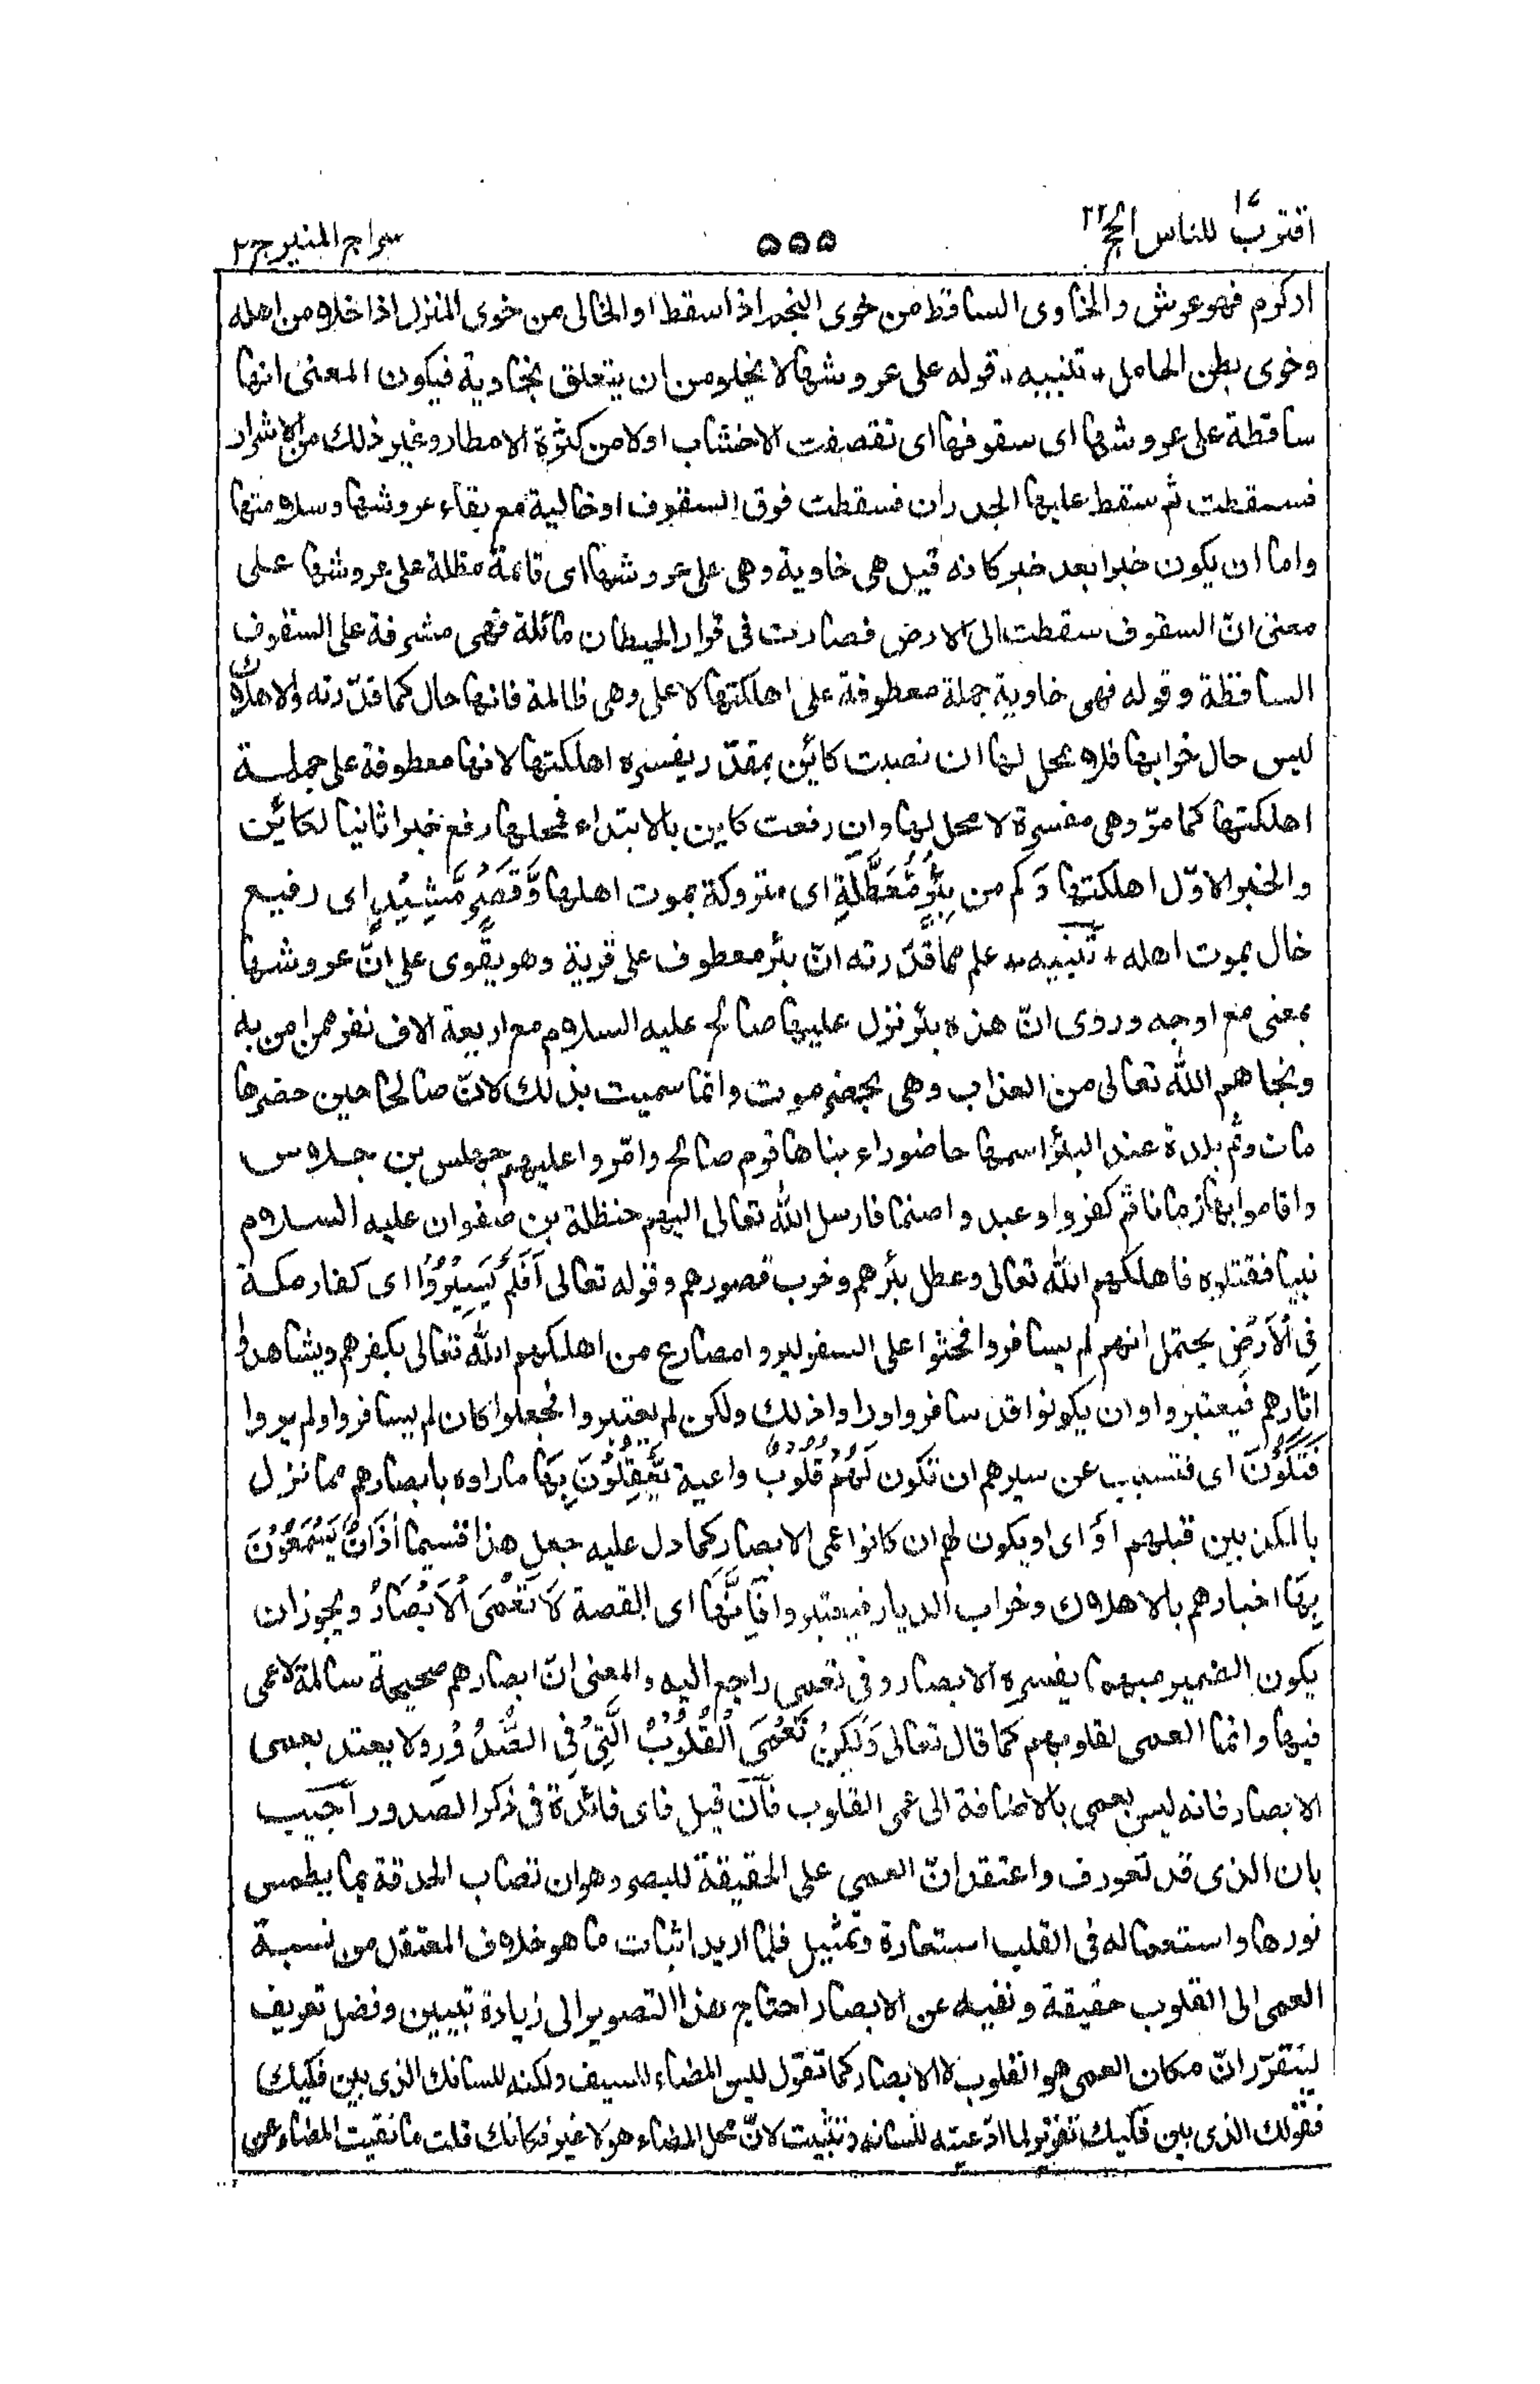 اقترب للناس ١٧ الحج ٢٢
٥٥٥
سراج المنير ج ٢
اوكرم فهو عرش والخاوى الساقط من خوى النجم اذا سقط او الخالى من خوى المنزل اذا خلا من اهله
وخوى بطن الحامل * تنبيه * قوله على عروشها لا يخلو من ان يتعلق بخاوية فيكون المعنى انها
ساقطة على عروشها اى سقوفها اى تقصفت الاخشاب اولا من كثرة الامطار وغير ذلك من الاشرار
فسقطت ثم سقط عليها الجدران فسقطت فوق السقوف او خالية مع بقاء عروشها وسلامتها
واما ان يكون خبرا بعد خبر كانه قيل هى خاوية وهى على عروشها اى قائمة مظلة على عروشها على
معنى انّ السقوف سقطت الى الارض فصارت فى قرار الحيطان مائلة فهى مشرفة على السقوف
الساقطة وقوله فهى خاوية جملة معطوفة على اهلكتها لا على وهى ظالمة فانها حال كما قدّرته والاهلاك
ليس حال خرابها فلا محل لها ان نصبت كائن بمقدّر يفسره اهلكتها لانها معطوفة على جملة
اهلكتها كما مرّ وهى مفسرة لا محل لها وان رفعت كاين بالابتداء فمحلها رفع خبرا ثانيا لكائن
والخبر الاوّل اهلكتها وَ كم من بِئْرٍ مُّعَطَّلَةٍ اى متروكة بموت اهلها وَّقَصْرٍ مَّشِيْدٍ اى رفيع
خال بموت اهله * تنبيه * علم مما قدّرته انّ بئر معطوف على قرية وهو يقوى على انّ عروشها
بمعنى مع اوجه وروى انّ هذه بئر نزل عليها صالح عليه السلام مع اربعة الاف نفر ممن امن به
ونجاهم الله تعالى من العذاب وهى بحضرموت وانما سميت بذلك لانّ صالحا حين حضرها
مات وثم بلدة عند البئر اسمها حاضوراء بناها قوم صالح وامّروا عليهم جهلس بن جلاس
واقاموا بها زمانا ثم كفروا وعبدوا صنما فارسل الله تعالى اليهم حنظلة بن صفوان عليه السلام
نبيا فقتلوه فاهلكهم الله تعالى وعطل بئرهم وخرب قصورهم وقوله تعالى اَفَلَمْ يَسِيْرُوْا اى كفار مكة
فِى الْاَرْضِ يحتمل انهم لم يسافروا فحثوا على السفر ليروا مصارع من اهلكهم الله تعالى بكفرهم ويشاهدوا
اثارهم فيعتبروا وان يكونوا قد سافروا وراوا ذلك ولكن لم يعتبروا فجعلوا كان لم يسافروا ولم يروا
فَتَكُوْنَ اى فتسبب عن سيرهم ان تكون لَهُمْ قُلُوْبٌ واعية يَّعْقِلُوْنَ بِهَا ما راوه بابصارهم مما نزل
بالمكذبين قبلهم اَوْ اى او يكون لهم ان كانوا عمى الابصار كما دل عليه جعل هذا قسيما اٰذَانٌ يَّسْمَعُوْنَ
بِهَا اخبارهم بالاهلاك وخراب الديار فيعتبروا فَاِنَّهَا اى القصة لَا تَعْمَى الْاَبْصَارُ ويجوز ان
يكون الضمير مبهما يفسره الابصار وفى تعمى راجع اليه والمعنى انّ ابصارهم صحيحة سالمة لا عمى
فيها وانما العمى لقلوبهم كما قال تعالى وَلٰكِنْ تَعْمَى الْقُلُوْبُ الَّتِىْ فِى الصُّدُوْرِ ولا يعتد بعمى
الابصار فانه ليس بعمى بالاضافة الى عمى القلوب فان قيل فاى فائدة فى ذكر الصدور اجيب
بان الذى قد تعورف واعتقد انّ العمى على الحقيقة للبصر وهو ان تصاب الحدقة بما يطمس
نورها واستعماله فى القلب استعارة وتمثيل فلما اريد اثبات ما هو خلاف المعتقد من نسبة
العمى الى القلوب حقيقة ونفيه عن الابصار احتاج هذا التصوير الى زيادة تبيين وفضل تعريف
ليتقرّر انّ مكان العمى هو القلوب لا الابصار كما تقول ليس المضاء للسيف ولكنه للسانك الذى بين فكيك
فقولك الذى بين فكيك تقرير لما ادّعيته للسانه وتثبيت لانّ محل المضاء هو لا غير فكانك قلت ما نفيت المضاء عن